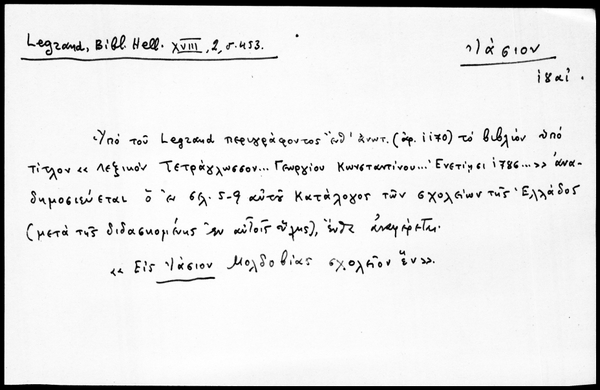 Legrand, Bibl. Hell. XVIII, 2, σ. 453.
Ἰάσιον
ιηʹ αἰ.
Ὑπὸ τοῦ Legrand περιγράφοντος ἔνθ' ἀνωτ. (ἀρ. 1170) τὸ βιβλίον ὑπὸ
τίτλον « Λεξικὸν Τετράγλωσσον... Γεωργίου Κωνσταντίνου... Ἐνετίησι 1786...» ἀνα-
δημοσιεύεται ὁ ἐν σελ. 5-9 αὐτοῦ Κατάλογος τῶν σχολείων τῆς Ἑλλάδος
(μετὰ τῆς διδασκομένης ἐν αὐτοῖς ὕλης), ἔνθα ἀναφέρεται.
« Εἰς Ἰάσιον Μολδοβίας σχολεῖον ἕν».